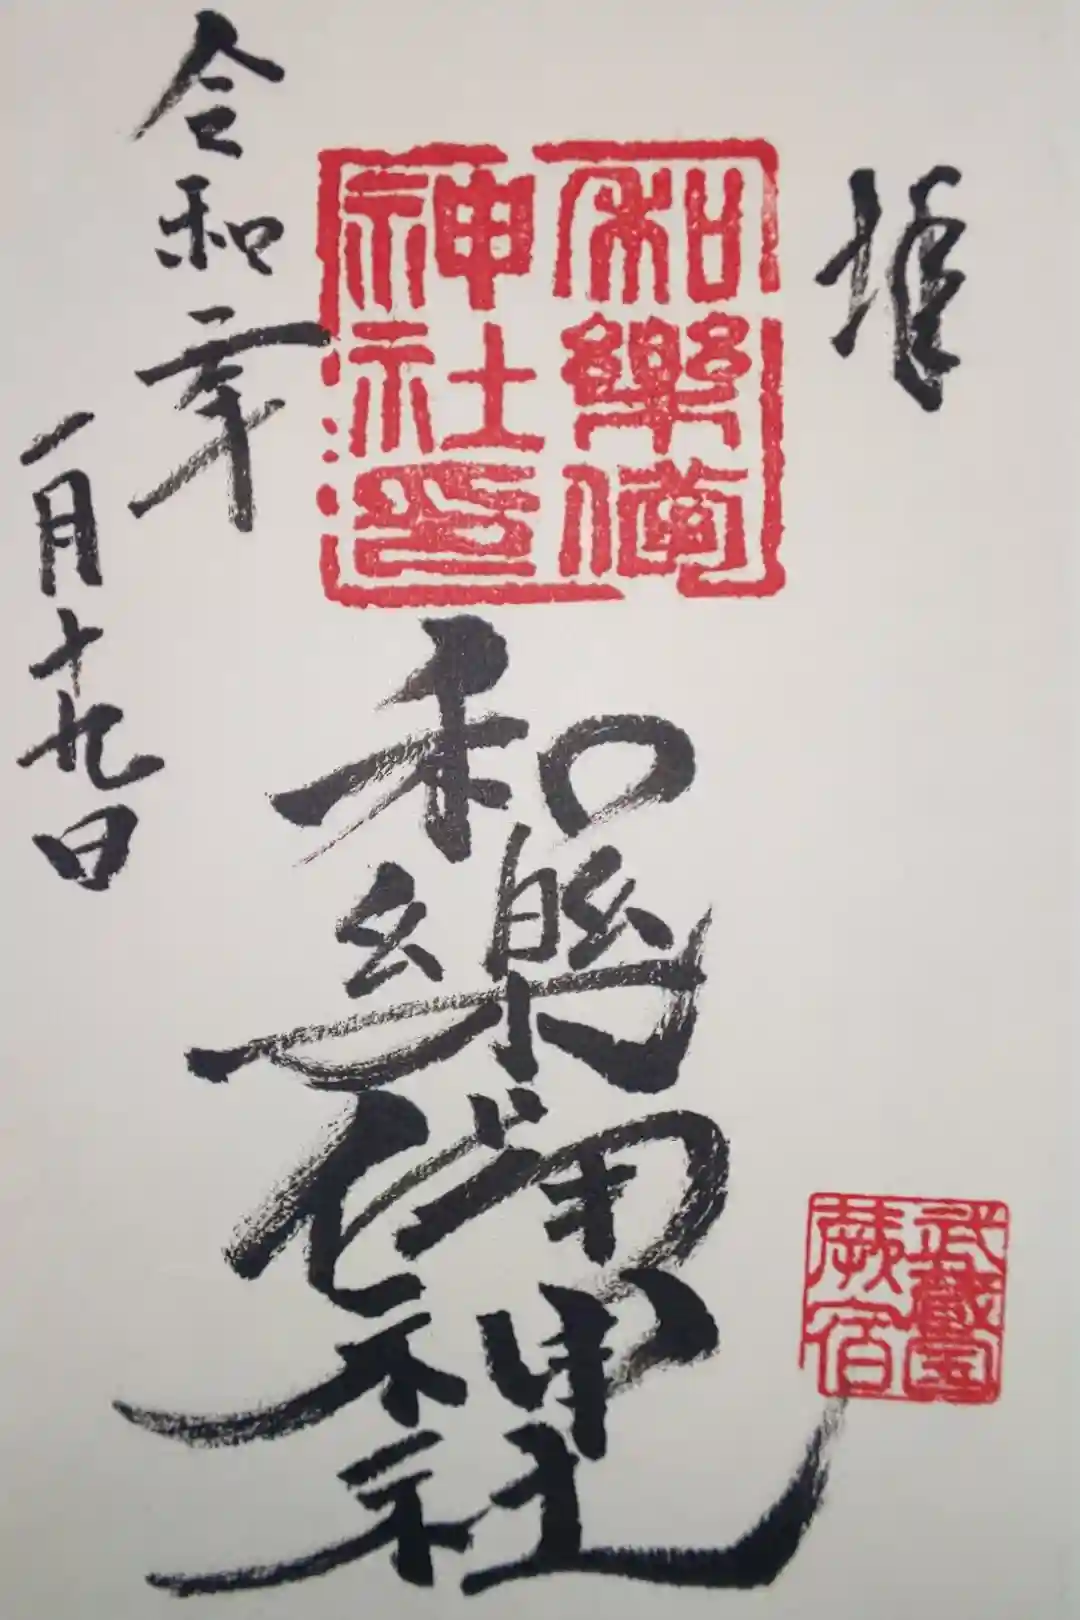 拝
和樂備
神社印
和樂備神社
武藏國
蕨宿
令和二年
一月十九日